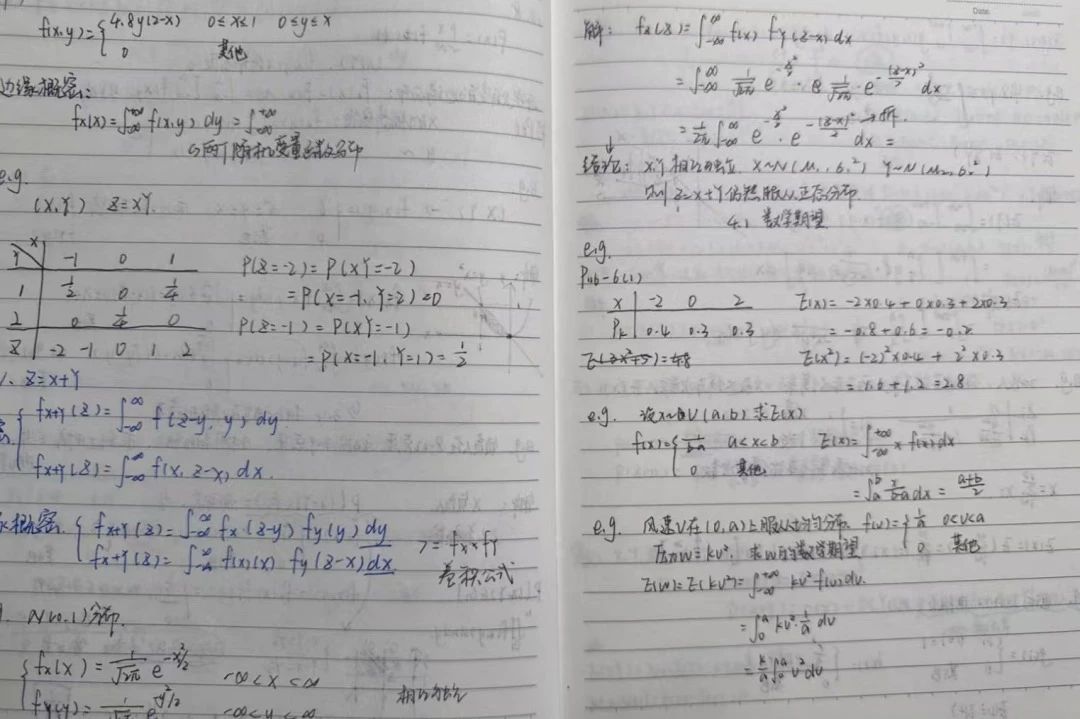 f(x,y)={4.8y(2-x) 0≤x≤1 0≤y≤x
0 其他
边缘概密:
fx(x)=∫-∞+∞ f(x,y) dy = ∫-∞+∞
两个随机变量函数分布
e.g.
(X,Y) Z=XY
Y\X -1 0 1
1 1/2 0 1/4
2 0 1/4 0
Z -2 -1 0 1 2
P(Z=-2)=P(XY=-2)
=P(X=-1,Y=2)=0
P(Z=-1)=P(XY=-1)
=P(X=-1,Y=1)=1/2
Z=X+Y
fx+y(z)=∫-∞∞ f(z-y, y) dy
fx+y(z)=∫-∞∞ f(x, z-x) dx.
概密 {fx+y(z)=∫-∞∞ fx(z-y) fy(y) dy
fx+y(z)=∫-∞∞ f(x)(x) fy(z-x) dx.
=fx*fy
卷积公式
N(0,1)分布.
{fx(x)=1/√2π e^-x²/2 -∞<x<∞
fy(y)= 1/√2π e^-y²/2 -∞<y<∞
相互独立
解: fx(z)=∫-∞∞ f(x) fy(z-x) dx
=∫-∞∞ 1/√2π e^-x²/2 · 1/√2π · e^-(z-x)²/2 dx
=1/2π ∫-∞∞ e^-x²/2 · e^-(z-x)²/2 dx = →拆.
结论: X,Y相互独立 X~N(μ1,б1²) Y~N(μ2,б2²)
则Z=X+Y仍然服从正态分布.
4.1 数学期望
e.g.
P116-6(1)
X -2 0 2
Pk 0.4 0.3 0.3
E(x)=-2×0.4+0×0.3+2×0.3
=-0.8+0.6=-0.2
E(x²)=(-2)²×0.4 + 2²×0.3
=1.6+1.2=2.8
e.g. 设x~U(a,b) 求E(x)
f(x)={1/b-a a<x<b
0 其他
E(x)=∫-∞+∞ x f(x) dx
=∫ab x/b-a dx = a+b/2
e.g. 风速V在(0,a)上服从均匀分布 f(v)={1/a 0<v<a
0 其他
压力W=kv², 求W的数学期望
E(W)=E(kv²)=∫-∞+∞ kv² f(v) dv.
=∫0a kv²·1/a dv
=k/a∫0a v² dv